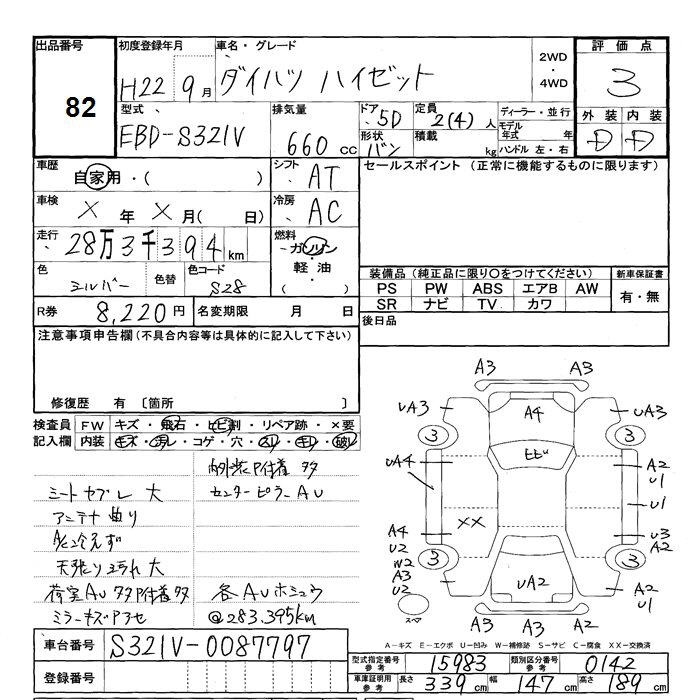 出品番号
82
初度登録年月
H22 9月
車名・グレード
ダイハツ ハイゼット
2WD
・
4WD
評価点
3
型式
EBD-S321V
排気量
660cc
ドア
5D
形状
バン
定員
2(4)人
積載
kg
ディーラー・並行
モデル年式 年
ハンドル 左・右
外装 内装
D D
車歴
自家用・( )
シフト
AT
セールスポイント (正常に機能するものに限ります)
車検
× 年 × 月( 日)
冷房
AC
走行
28万3千394km
燃料
ガソリン
・
軽油
( )
色
シルバー
色替
色コード
S28
装備品(純正品に限り○をつけてください)
新車保証書
PS PW ABS エアB AW
SR ナビ TV カワ
有・無
R券
8,220円
名変期限 月 日
後日品
注意事項申告欄(不具合内容等は具体的に記入して下さい)
修復歴 有 〔箇所 〕
検査員記入欄
FW キズ・飛石・ヒビ割・リペア跡・×要
内装
内外装P付着 多
シートヤブレ 大
センターピラーAU
アンテナ曲り
A/C冷えず
天張りヨゴれ大
荷室AU多P付着多
各AUホシュウ
ミラーキズアセ
@283.395km
A3 A3
UA3 A4 UA3
3 3
ヒビU
UA4 A2
U1
U1
××
A4 U3
U2 A2
W2
3 3
A3
U2
UA2 A2
U1
スペア
A3 A3 A2
A-キズ E-エクボ U-凹み W-補修跡 S-サビ C-腐食 XX-交換済
車台番号
S321V-0087797
登録番号
型式指定番号
参考
15983
類別区分番号
参考
0142
車庫証明用
参考
長さ 339cm 幅 147cm 高さ 189cm